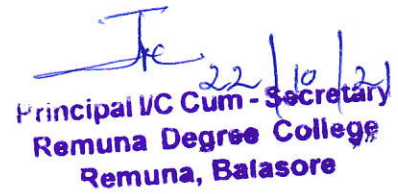 22/10/21
Principal I/C Cum - Secretary
Remuna Degree College
Remuna, Balasore